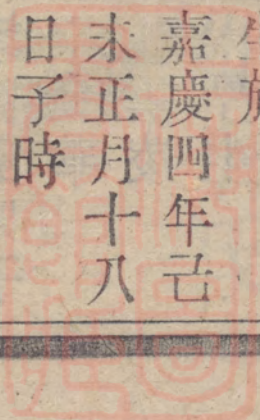 生於
嘉慶四年己
未正月十八
日子時